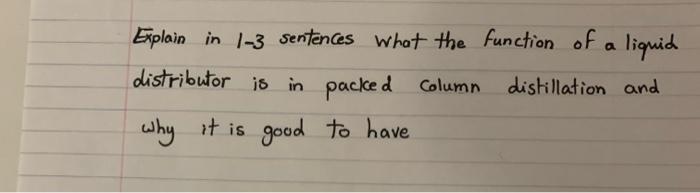 Explain in 1-3 sentences what the function of a liquid
distributor is in packed column distillation and
why it is good to have